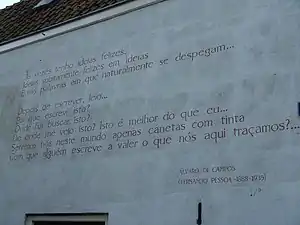 Às vezes tenho ideias felizes,
Ideias subitamente felizes, em ideias
E nas palavras em que naturalmente se despegam...
Depois de escrever, leio...
Por que escrevi isto?
Onde fui buscar isto?
De onde me veio isto? Isto é melhor do que eu...
Seremos nós neste mundo apenas canetas com tinta
Com que alguém escreve a valer o que nós aqui traçamos?...
ÁLVARO DE CAMPOS
(FERNANDO PESSOA, 1888-1935)